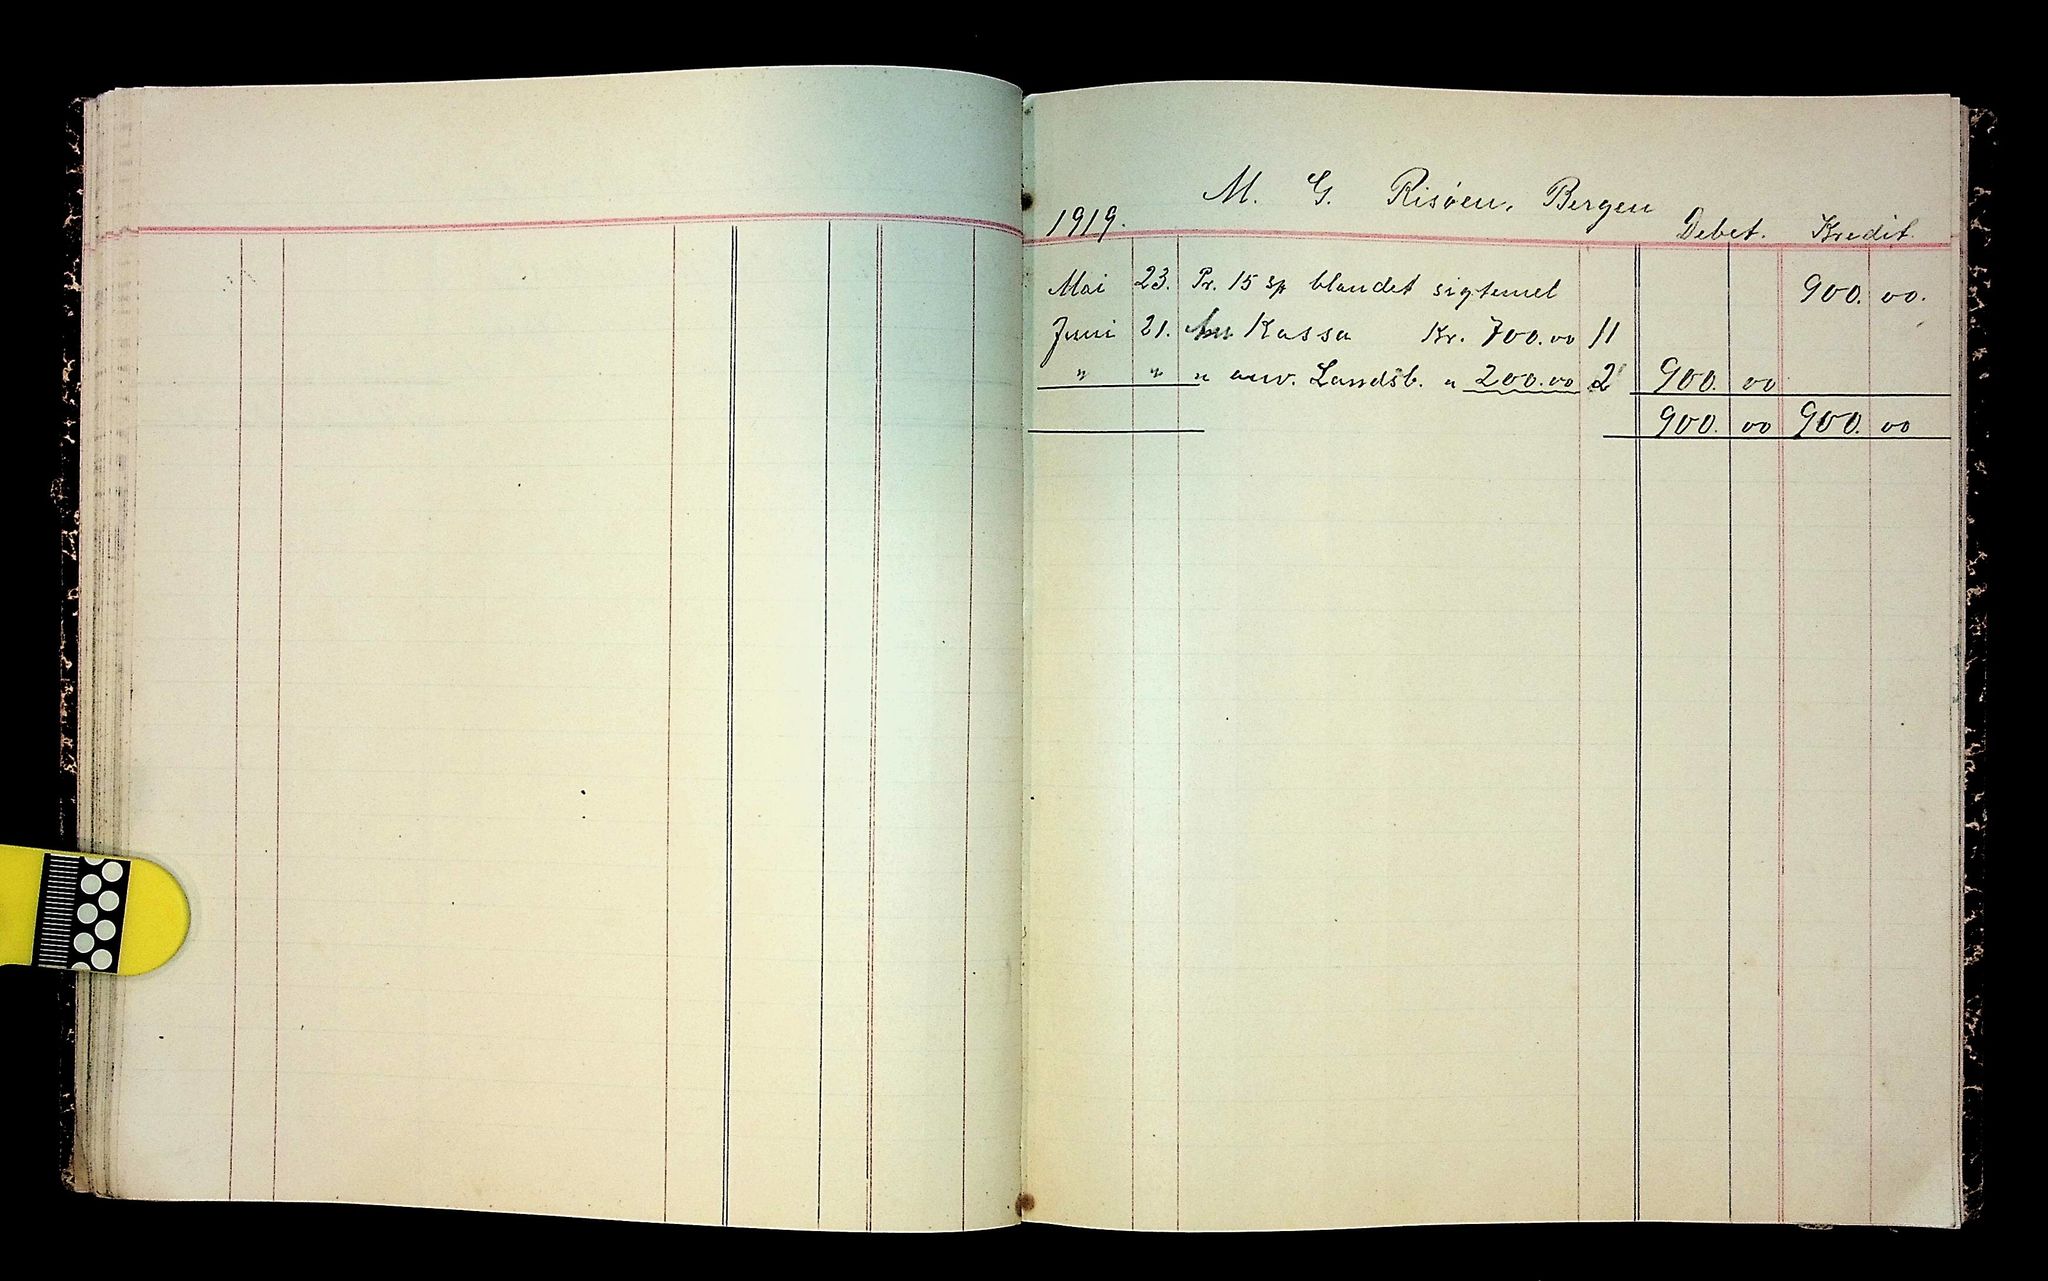 M. G. Risöen, Bergen
1919. Debet. Kredit.
Mai 23. Pr. 15 sp blandet sigtemel 900. 00.
Juni 21. An Kassa Kr. 700.00 11
" " " anv. Landsb. " 200.00 2 900. 00
900. 00 900. 00